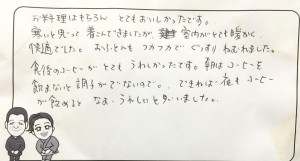 お料理はもちろん とてもおいしかったです。
寒いと思って 着こんできましたが、室内がとても暖かく、
快適でした。おふとんも フカフカで ぐっすり ねむれました。
食後のコーヒーが とても うれしかったです。朝はコーヒーを
飲まないと調子がでないので。、できれば 夜も コーヒー
が飲めると なお うれしいと思いました。